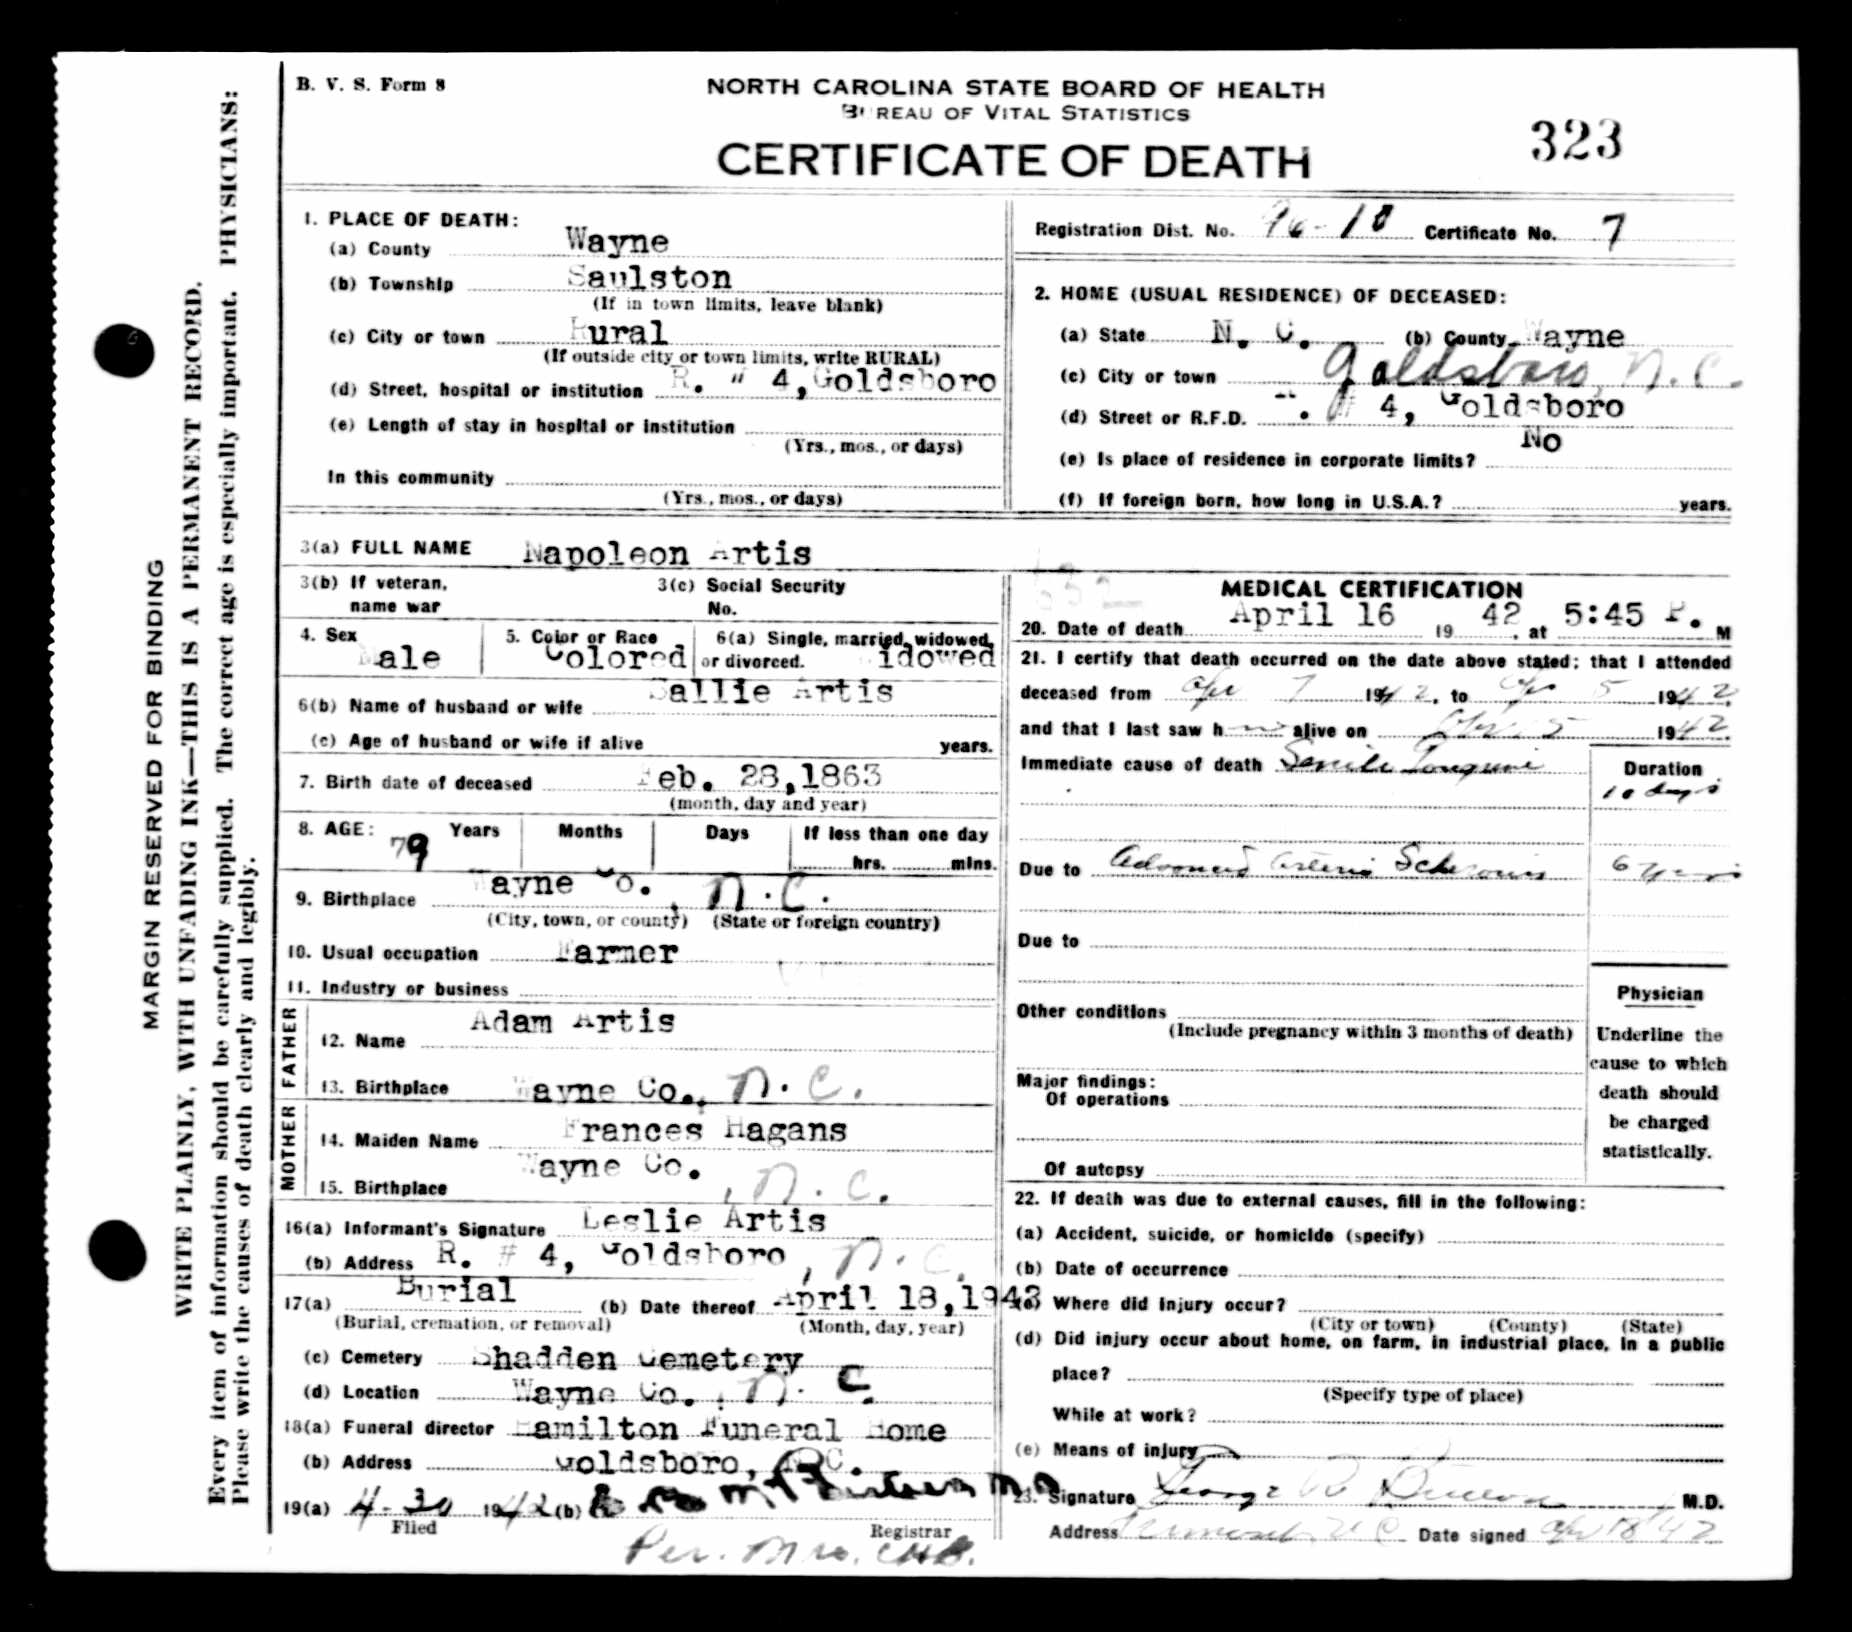 B. V. S. Form 8
NORTH CAROLINA STATE BOARD OF HEALTH
BUREAU OF VITAL STATISTICS
CERTIFICATE OF DEATH
323
MARGIN RESERVED FOR BINDING
WRITE PLAINLY, WITH UNFADING INK—THIS IS A PERMANENT RECORD.
Every item of information should be carefully supplied. The correct age is especially important. PHYSICIANS:
Please write the causes of death clearly and legibly.
1. PLACE OF DEATH:
(a) County Wayne
(b) Township Saulston
(If in town limits, leave blank)
(c) City or town Rural
(If outside city or town limits, write RURAL)
(d) Street, hospital or institution R. # 4, Goldsboro
(e) Length of stay in hospital or institution
(Yrs., mos., or days)
In this community
(Yrs., mos., or days)
Registration Dist. No. 96-10 Certificate No. 7
2. HOME (USUAL RESIDENCE) OF DECEASED:
(a) State N. C. (b) County Wayne
(c) City or town Goldsboro, N.C.
(d) Street or R.F.D. R. # 4, Goldsboro
(e) Is place of residence in corporate limits? No
(f) If foreign born, how long in U.S.A.? years.
3(a) FULL NAME Napoleon Artis
3(b) If veteran, name war
3(c) Social Security No.
4. Sex Male
5. Color or Race Colored
6(a) Single, married, widowed, or divorced. Widowed
6(b) Name of husband or wife Sallie Artis
(c) Age of husband or wife if alive years.
7. Birth date of deceased Feb. 28, 1863
(month, day and year)
8. AGE: 79 Years Months Days If less than one day
hrs. mins.
9. Birthplace Wayne Co., N.C.
(City, town, or county) (State or foreign country)
10. Usual occupation Farmer
11. Industry or business
FATHER
12. Name Adam Artis
13. Birthplace Wayne Co., N.C.
MOTHER
14. Maiden Name Frances Hagans
15. Birthplace Wayne Co., N.C.
16(a) Informant's Signature Leslie Artis
(b) Address R. # 4, Goldsboro, N.C.
17(a) Burial (b) Date thereof April 18, 1942
(Burial, cremation, or removal) (Month, day, year)
(c) Cemetery Shadden Cemetery
(d) Location Wayne Co., N. C.
18(a) Funeral director Hamilton Funeral Home
(b) Address Goldsboro, N.C.
19(a) 4-30 1942 (b) M.D.
Filed Registrar
Per. Mrs. CHB.
MEDICAL CERTIFICATION
20. Date of death April 16 19 42, at 5:45 P. M
21. I certify that death occurred on the date above stated; that I attended
deceased from Apr 7 1942, to Apr 5 1942,
and that I last saw h alive on Apr. 5 1942.
Immediate cause of death Senile
Duration
10 days
Due to Advanced Arterio Sclerosis 6 years
Due to
Other conditions
(Include pregnancy within 3 months of death)
Major findings:
Of operations
Of autopsy
Physician
Underline the
cause to which
death should
be charged
statistically.
22. If death was due to external causes, fill in the following:
(a) Accident, suicide, or homicide (specify)
(b) Date of occurrence
(c) Where did injury occur?
(City or town) (County) (State)
(d) Did injury occur about home, on farm, in industrial place, in a public
place?
(Specify type of place)
While at work?
(e) Means of injury
23. Signature George R M.D.
Address N C Date signed Apr 18 '42